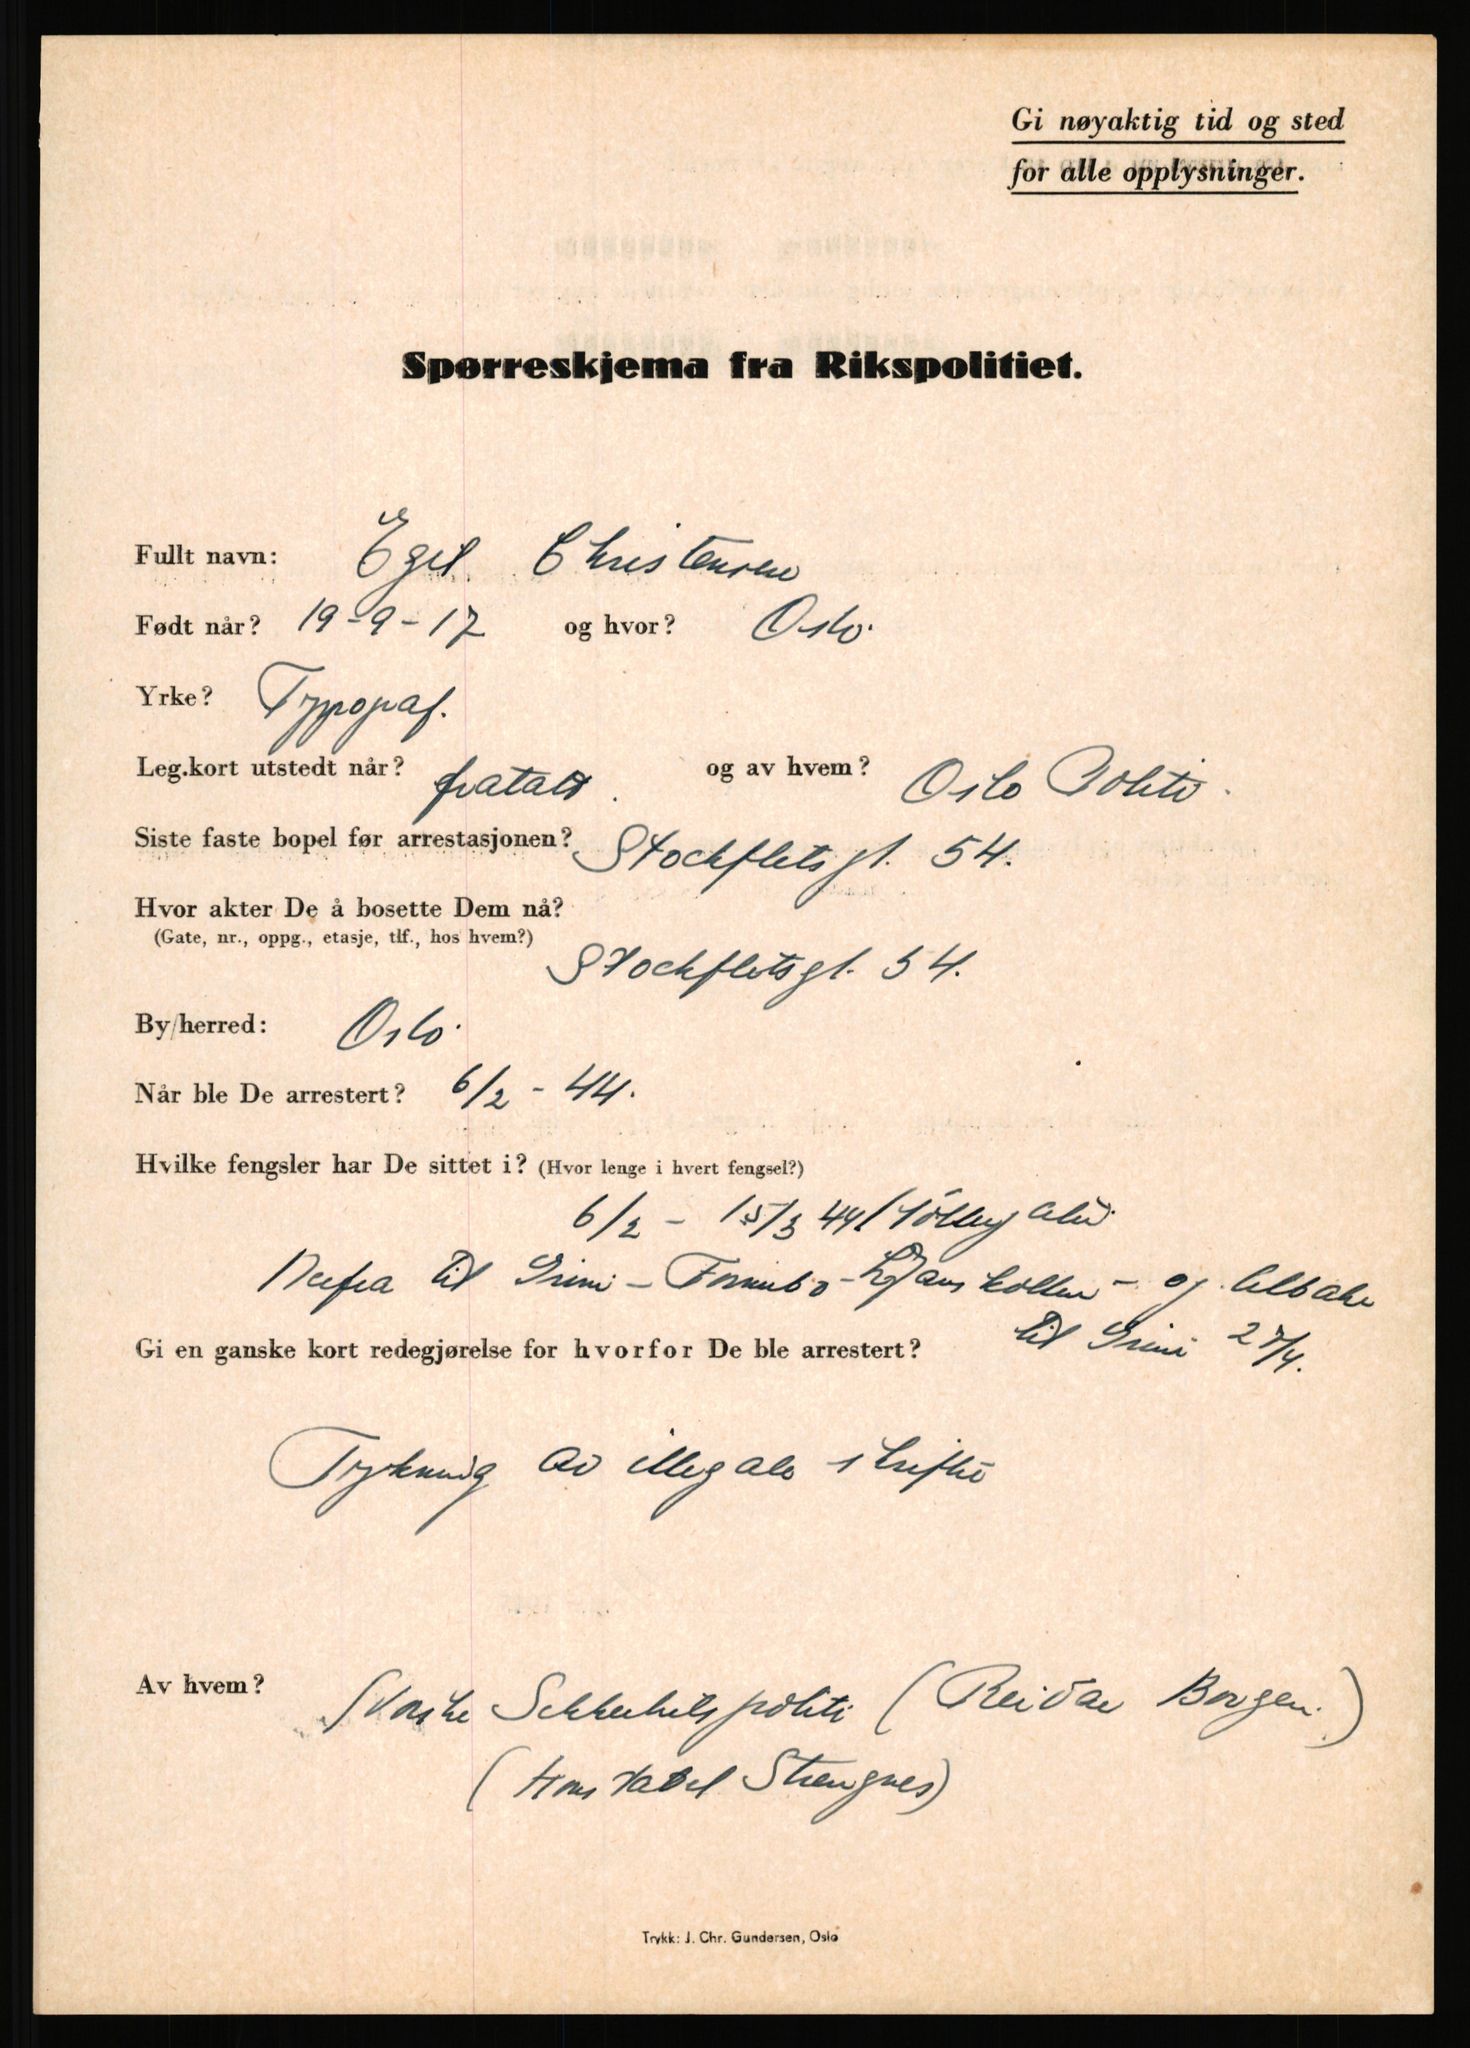 Gi nøyaktig tid og sted
for alle opplysninger.
Spørreskjema fra Rikspolitiet.
Fullt navn: Egil Christensen
Født når? 19-9-17 og hvor? Oslo.
Yrke? Typograf.
Leg.kort utstedt når? fratatt. og av hvem? Oslo Politi.
Siste faste bopel før arrestasjonen? Stockfletsgt. 54.
Hvor akter De å bosette Dem nå?
(Gate, nr., oppg., etasje, tlf., hos hvem?)
Stockfletsgt. 54.
By/herred: Oslo.
Når ble De arrestert? 6/2 - 44.
Hvilke fengsler har De sittet i? (Hvor lenge i hvert fengsel?)
6/2 - 15/3 44
til Grini - Fornebo - og tilbake
til Grini 27/4.
Gi en ganske kort redegjørelse for hvorfor De ble arrestert?
Trykning av illegale skrifter
Av hvem? Norske Sikkerhetspoliti (Reidar Borgen.)
(Konstabel Strengnes)
Trykk: J. Chr. Gundersen, Oslo